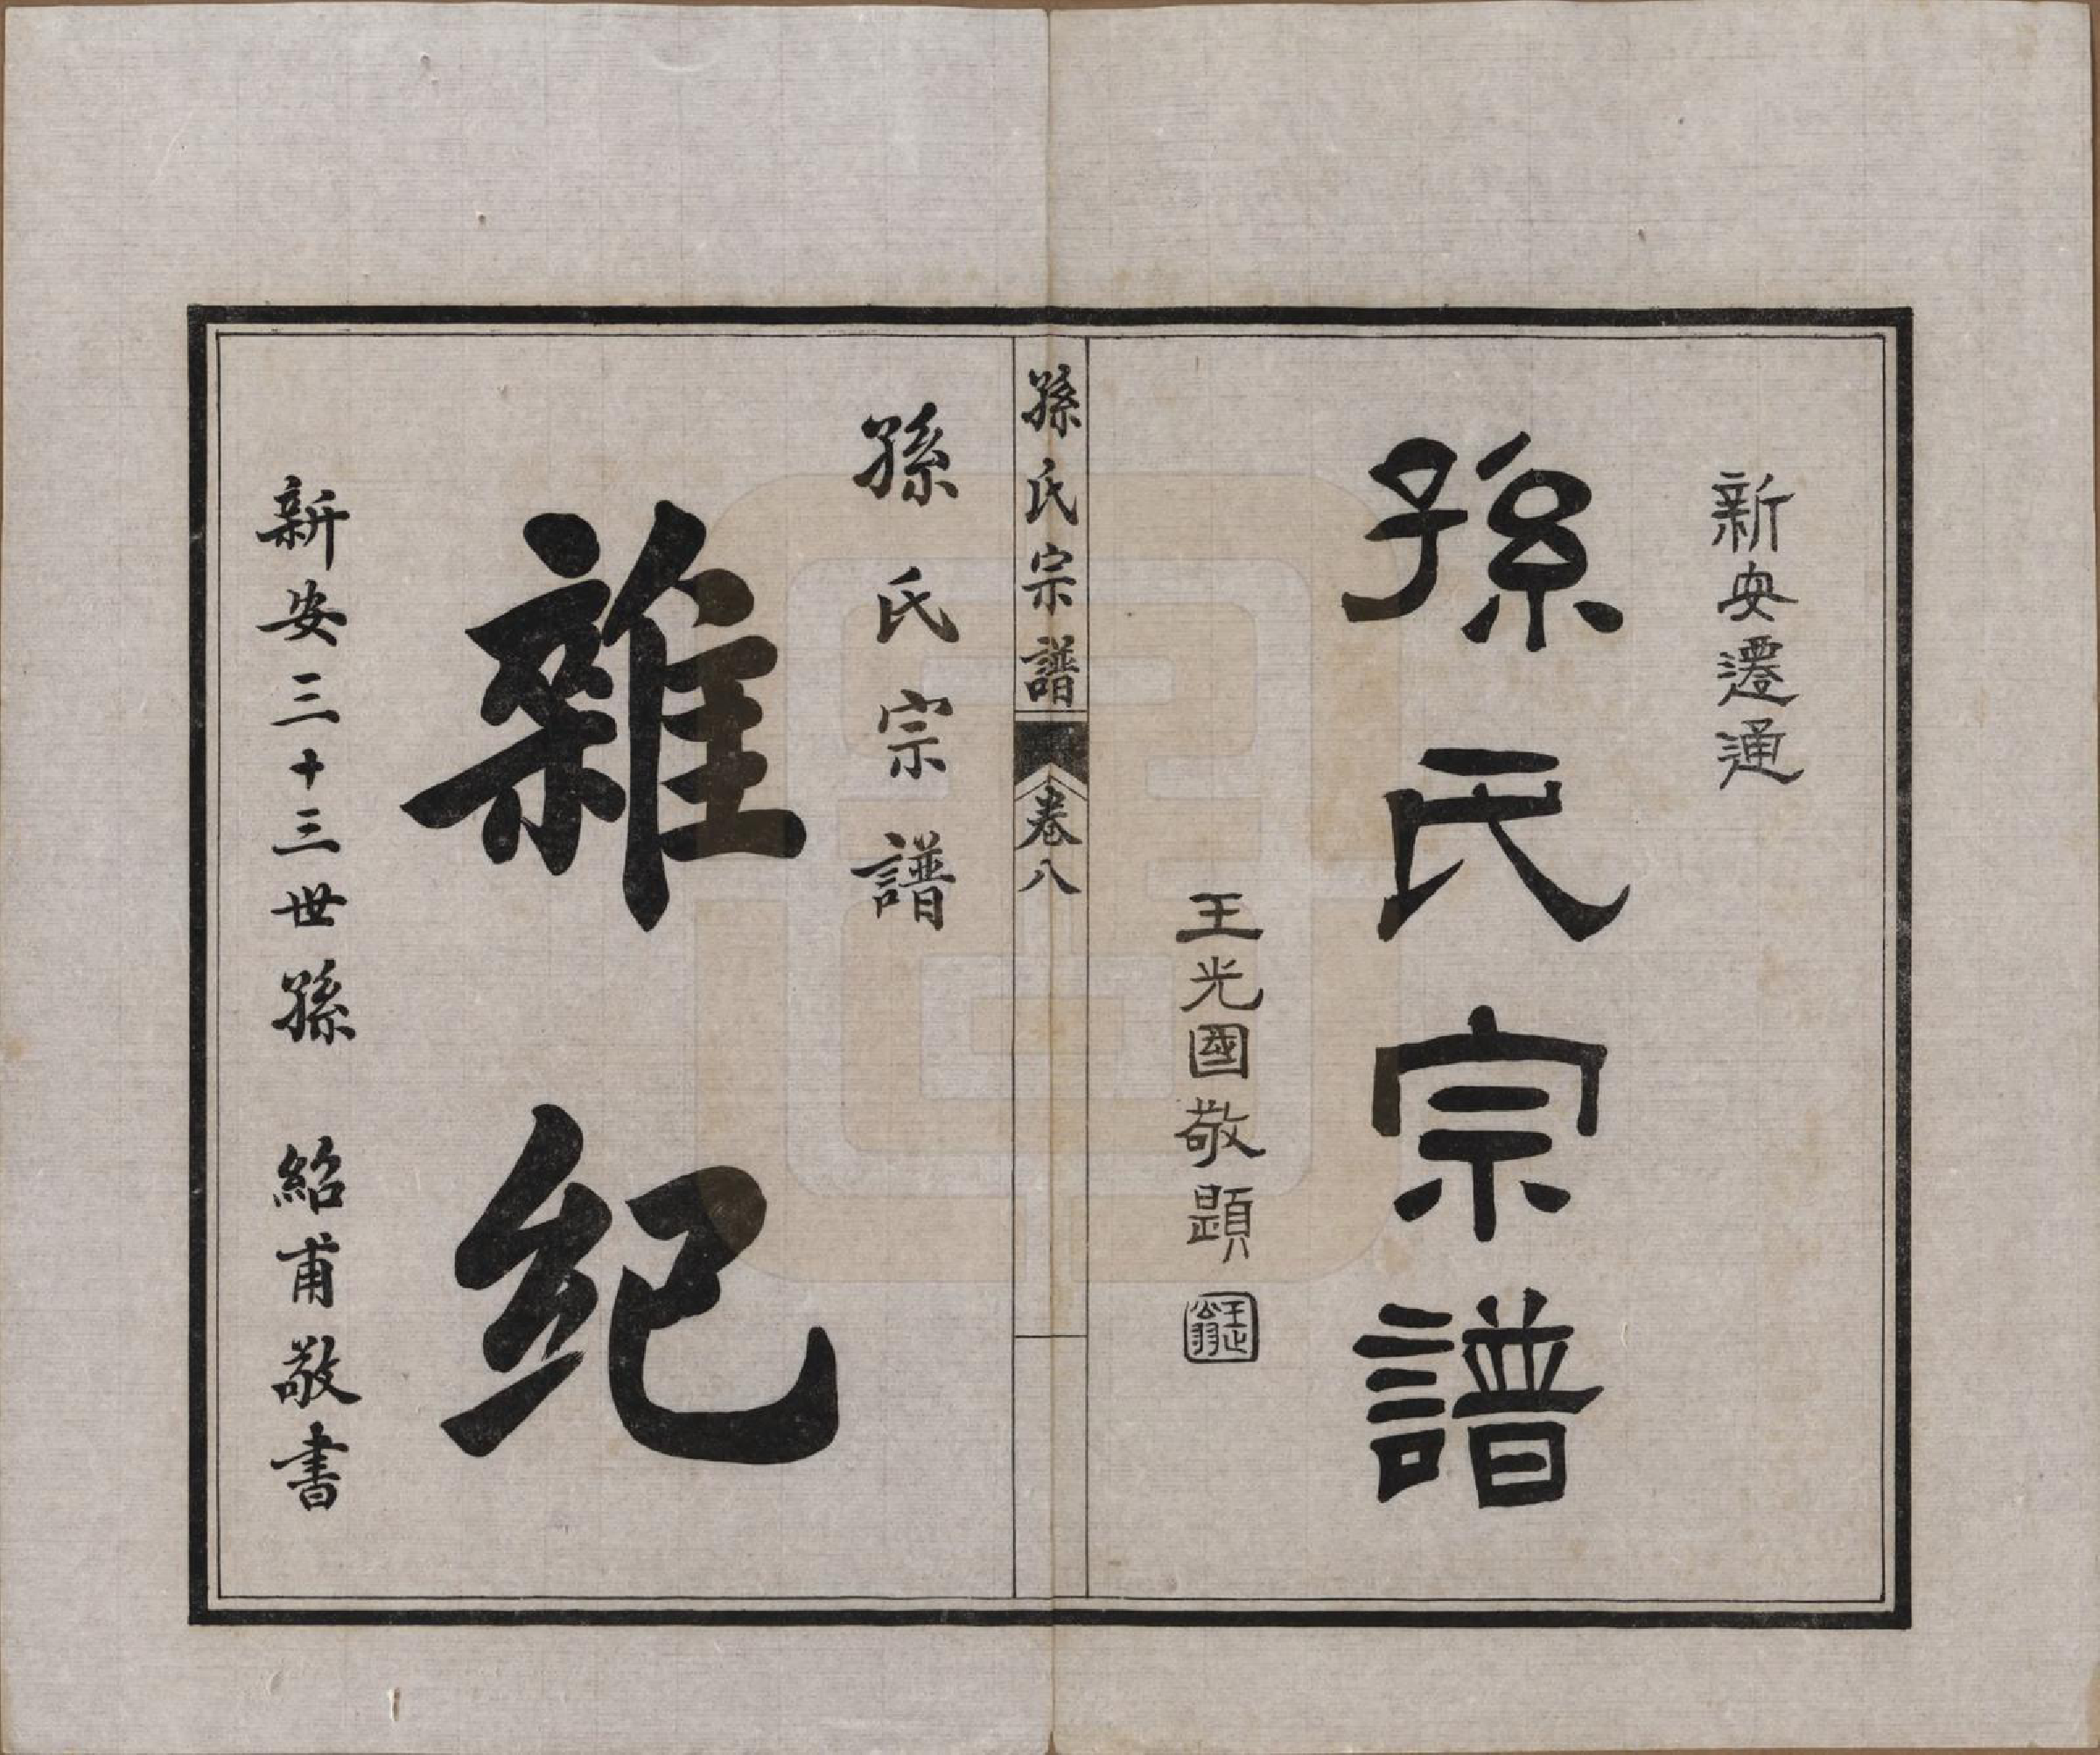 新安遷通
孫氏宗譜
王光國敬題
孫氏宗譜
卷八
孫氏宗譜
雜紀
新安三十三世孫 紹甫敬書